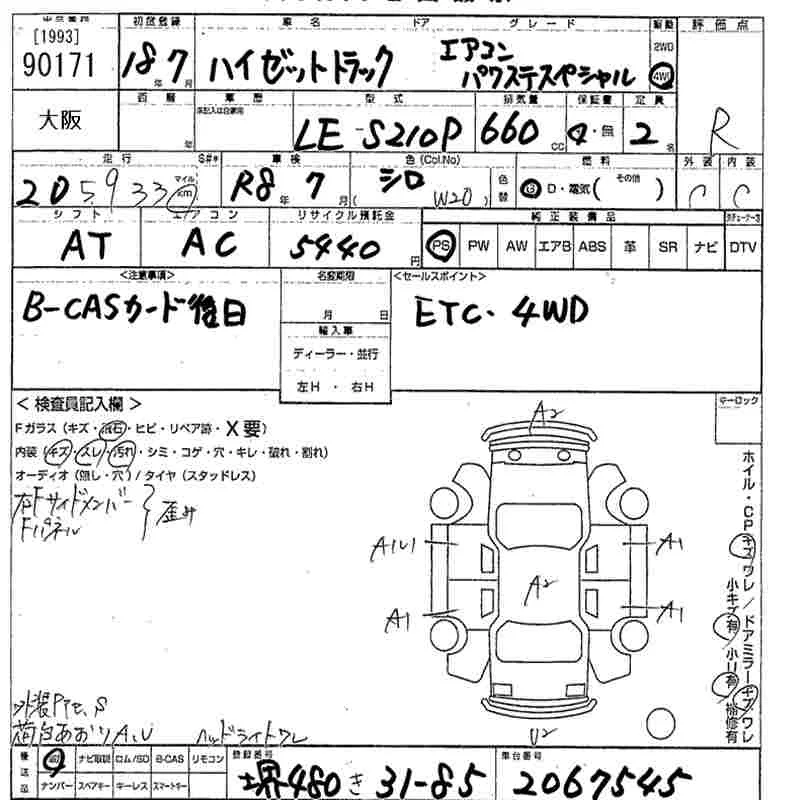 [1993]
90171
大阪
初度登録
18年7月
車名
ドア
グレード
ハイゼットトラック
エアコン
パワステスペシャル
駆動
2WD
4WD
評価点
R
西暦
年
車歴
未記入は自家用
型式
LE-S210P
排気量
660cc
保証書
有・無
定員
2名
走行
205933
マイル
km
S#*
車検
R8年7月
色(Col.No)
シロ
(W20)
色替
燃料
G・D・電気(その他)
外装
C
内装
C
シフト
AT
エアコン
AC
リサイクル預託金
5440円
純正装備品
PS PW AW エアB ABS 革 SR ナビ DTV
<注意事項>
B-CASカード後日
名変期限
月 日
輸入車
ディーラー・並行
左H・右H
<セールスポイント>
ETC・4WD
<検査員記入欄>
Fガラス(キズ・飛石・ヒビ・リペア跡・X要)
内装(キズ・スレ・汚れ・シミ・コゲ・穴・キレ・破れ・割れ)
オーディオ(無し・穴)/タイヤ(スタッドレス)
右Fサイドメンバー
Fパネル
歪み
キーロック
A2
A1U1
A1
A2
A1
A1
U2
ホイル・CPキズワレ/ドアミラーキズワレ
小キズ有 小U有 補修有
外装PTセ、S
荷台あおりA、U
ヘッドライトワレ
後送品
ナビ取説 ロム/SD B-CAS リモコン
ナンバー スペアキー キーレス スマートキー
登録番号
堺480き31-85
車台番号
2067545